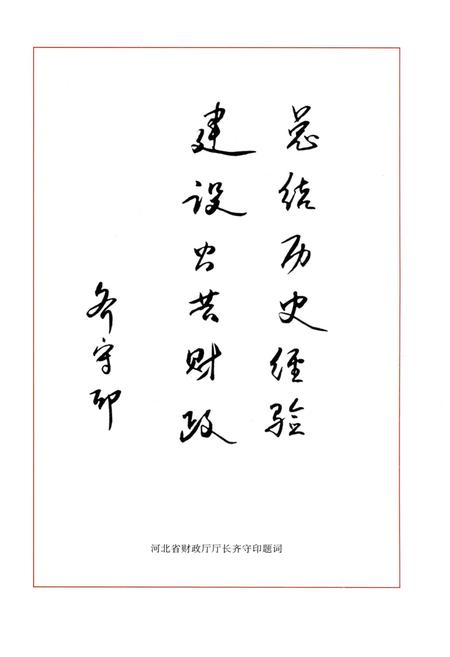 总结历史经验
建设公共财政
齐守印
河北省财政厅厅长齐守印题词